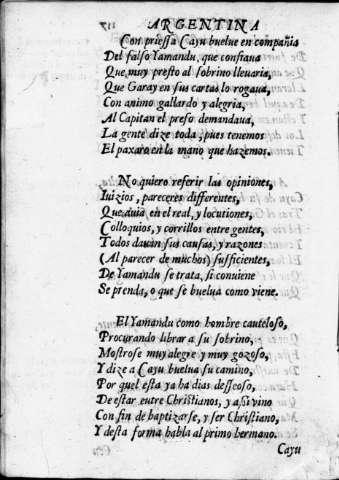 ARGENTINA
Con priessa Cayu buelue en compañia
Del falso Yamandu, que confiaua
Que muy presto al sobrino lleuaria,
Que Garay en sus cartas lo rogaua,
Con animo gallardo y alegria,
Al Capitan el preso demandaua,
La gente dize toda, pues tenemos
El paxaro en la mano que hazemos.
No quiero referir las opiniones,
Iuizios, pareceres differentes,
Que auia en el real, y locutiones,
Colloquios, y corrillos entre gentes,
Todos dauan sus causas, y razones
(Al parecer de muchos) sufficientes,
De Yamandu se trata, si conuiene
Se prenda, o que se buelua como viene.
El Yamandu como hombre cauteloso,
Procurando librar a su sobrino,
Mostrose muy alegre y muy gozoso,
Y dize a Cayu buelua su camino,
Por quel esta ya ha dias desseoso,
De estar entre Christianos, y assi vino
Con fin de baptizarse, y ser Christiano,
Y desta forma habla al primo hermano.
Cayu